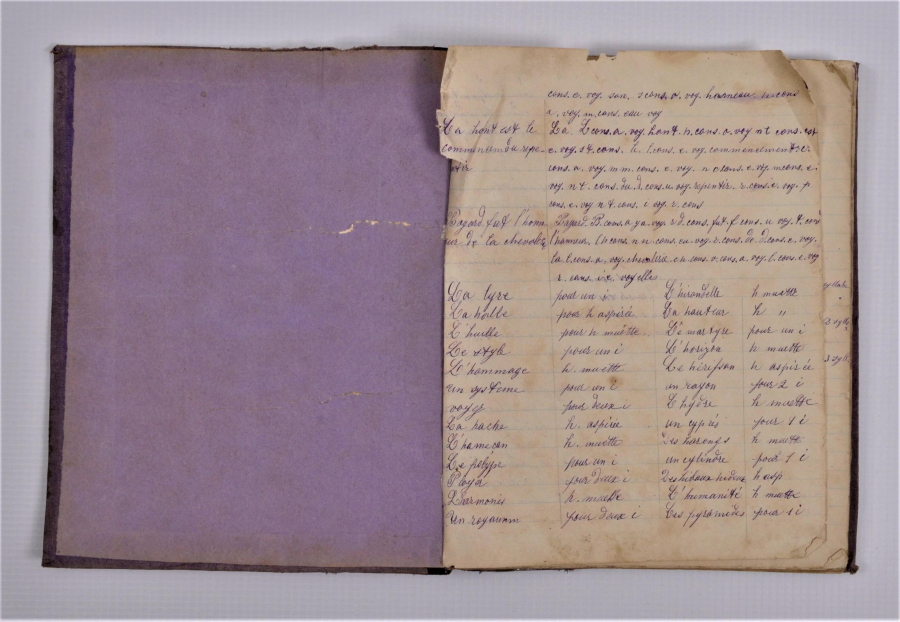 cons. e. voy. son. s cons. o. voy. hameau h cons
a. voy. m. cons. eau voy
La honte est le La L cons. a. voy. honte h. cons. o. voy n t cons. est
commencem du repe e. voy. s t. cons. le l. cons. e. voy. commencement c.
ntir cons. o. voy. m m. cons. e. voy. n c cons. e. voy. m cons. e.
voy. n t. cons. du. d. cons. u. voy. repentir. r. cons. e. voy. p
cons. e. voy n t. cons. i voy. r. cons
Bayard fut l'honn Bayard. B. cons. a y a. voy. r d. cons. fut. f cons. u voy. t. cons
eur de la chevalé l'honneur. l h cons. n n cons. eu voy. r. cons. de d. cons. e. voy.
la. l. cons. a. voy. chevalerie c h. cons. e. cons. a voy. l. cons. e. voy
r. cons. i e voyelle
La lyre pour un i L'hirondelle h muette syllabe
La halle pour h aspirée La hauteur h "
L'huille pour h muette Le martyre pour un i 3 sylla
Le style pour un i L'horizon h muette
L'hommage h. muette Le hérisson h aspirée 3 syll
un système pour un i un rayon pour 2 i
voyez pour deux i L'hydre h muette
La hache h. aspirée un cyprès pour 1 i
L'hameçon h. muette Des harengs h muett
Le polype pour un i un cylindre pour 1 i
Noyer pour deux i Des hiboux hideux h asp
L'harmonie h. muette L'humanité h muette
Un royaume pour deux i Les pyramides pour 1 i